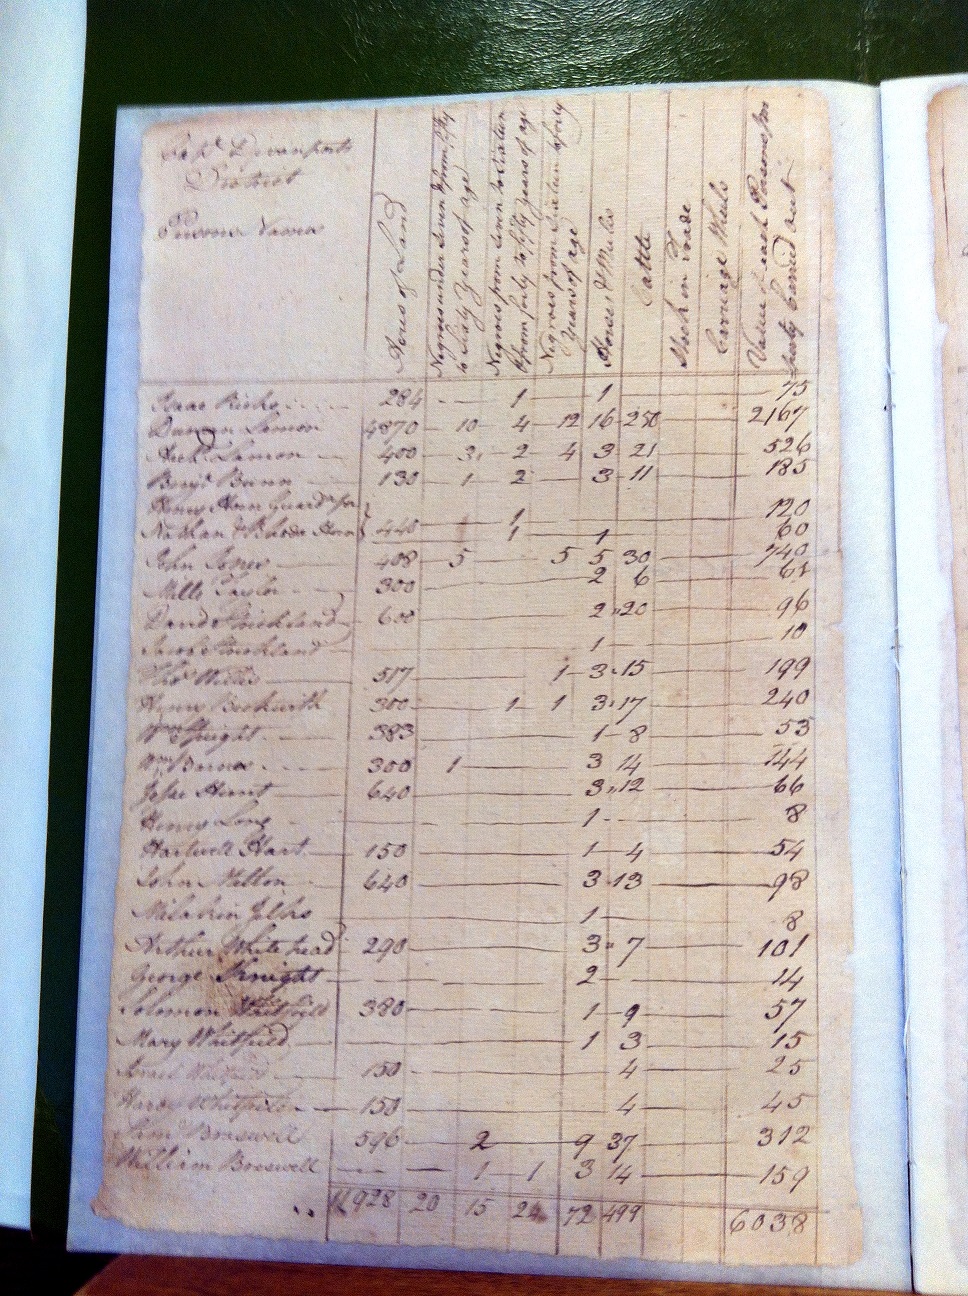 Capt Devanports
District
Persons Names
Acres of Land
Negroes under seven & from fifty to Sixty Years of age
Negroes from seven to Sixteen & from forty to fifty years of age
Negroes from Sixteen to forty Years of age
Horses & Mules
Cattle
Stock in Trade
Carriage Wheels
Value of each Persons property Carried out
Isaac Ricks 284 1 1 75
Duncan Lamon 4870 10 4 12 16 250 2167
Archd Lamon 400 3 2 4 3 21 526
Benjn Bunn 130 1 2 3 11 185
Henry Horn Guardn for 1 120
Nathan & Rhoda Horn 440 1 1 60
John 408 5 5 5 30 740
Mills Taylor 300 2 6
David Strickland 600 2 20 96
Jacob Strickland 1 10
Thos Willis 517 1 3 15 199
Henry Beckwith 300 1 1 3 17 240
Wm Knight 383 1 8 53
Wm 300 1 3 14 144
Jesse Hunt 640 3 12 66
Henry Long 1 8
Hartwell Hart 150 1 4 54
John Melton 640 3 13 98
1 8
Arthur Whitehead 290 3 7 101
George Knight 2 14
Solomon Whitfield 380 1 9 57
Mary Whitfield 1 3 15
Israel Whitfield 150 4 25
Hardy Whitfield 150 4 45
Saml Braswell 596 2 9 37 312
William Braswell 1 1 3 14 159
11,928 20 15 24 72 499 6038